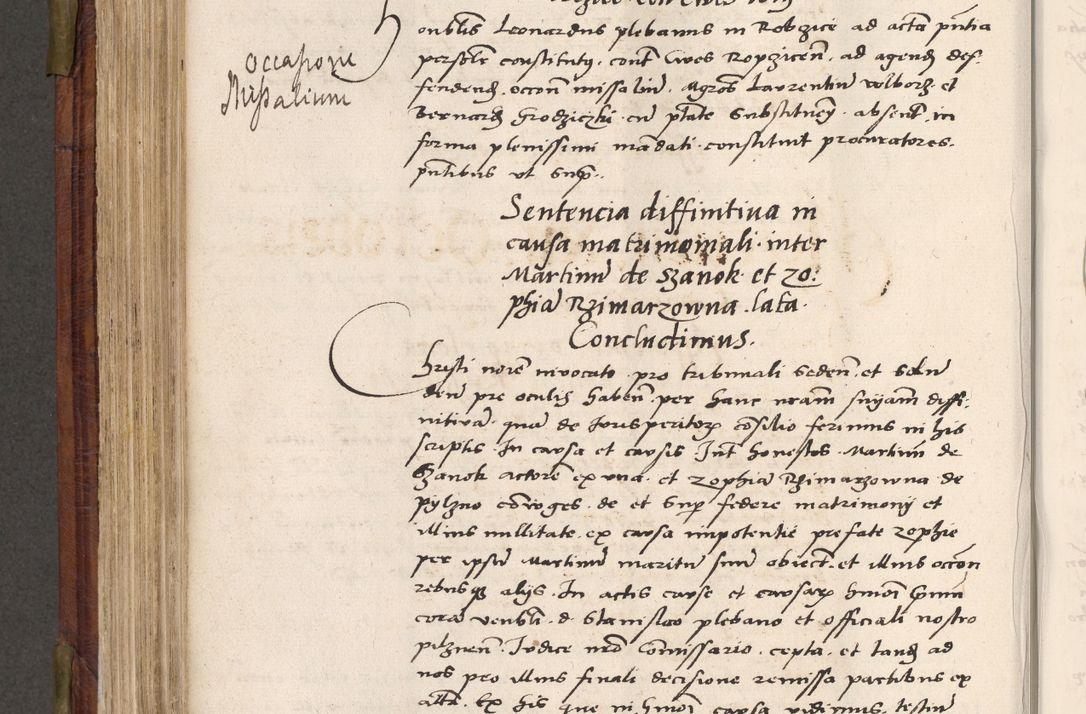 occasione
Missalium
onblis Leonardus plebanus in Robzicze ad acta pntia
psonlr constituty. cont Cives Ropzicen. ad agend def-
fendend. occon missaliu. Mgros Laurentiu Wolborz et
Bernard Grodziczki cu ptate substituendj. absent. in
forma plenissimi mandati constituit procuratores.
pntibus ut supr.
Sentencia diffinitiua in
causa matrimoniali. inter
Martinu de Szanok et zo-
phia Rzimarzowna. lata.
Concludimus.
Christi noie invocato. pro tribunali seden. et solu
deu pre oculis haben. per hanc nram sniam diffi-
nitiva. qua de Jurisperitor consilio ferimus in his
scriptis. In causa et causis Int honestos. Martinu de
Szanok actore ex una. et zophia Rzimarzowna de
Pylzno coniuges. de et sup federe matrimonij et
illius nullitate. ex causa impotentie prefate zophie
per ipsu Martinu maritu suu obiect. et illius occon
rebusq alijs. In actis cause et causar hmoi
cora venbli. d. Stanislao plebano et officiali nostro
pilznen. Judice nro Comissario. cepta. et tand ad
nos pro illius finali decisione remissa partibus ex
alta. Ex his que in hmoi causa vidimus. testiu